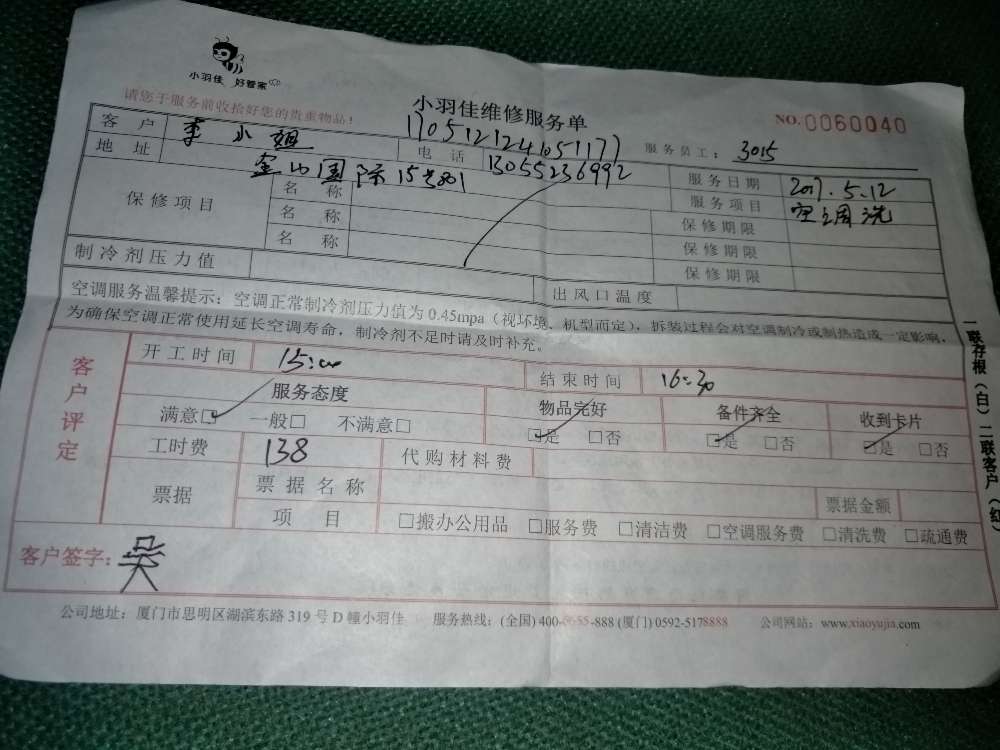 小羽佳 好管家
请您于服务前收拾好您的贵重物品！
小羽佳维修服务单
NO.0060040
170512124051177
客户 李小姐 电话 13055236992 服务员工： 3015
地址 金山国际15号801 服务日期 2017.5.12
保修项目 名称 服务项目 空调洗
名称 保修期限
名称 保修期限
保修期限
制冷剂压力值 出风口温度
空调服务温馨提示：空调正常制冷剂压力值为 0.45mpa（视环境、机型而定），拆装过程会对空调制冷或制热造成一定影响，
为确保空调正常使用延长空调寿命，制冷剂不足时请及时补充。
客户评定
开工时间 15:00 结束时间 16:30
服务态度 物品完好 备件齐全 收到卡片
满意☑ 一般□ 不满意□ ☑是 □否 ☑是 □否 ☑是 □否
工时费 138 代购材料费
票据 票据名称 票据金额
项目 □搬办公用品 □服务费 □清洁费 □空调服务费 □清洗费 □疏通费
客户签字： 吴
公司地址：厦门市思明区湖滨东路 319 号 D 幢小羽佳 服务热线：(全国) 400-6655-888 (厦门) 0592-5178888 公司网站：www.xiaoyujia.com
一联存根（白）二联客户（红